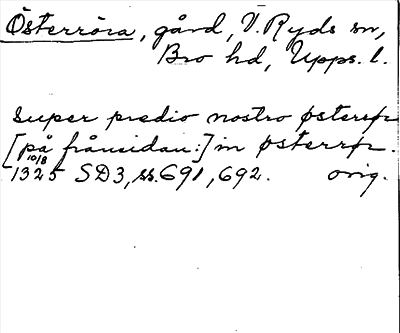 Österröra, gård, V. Ryds sn,
Bro hd, Upps. l.
super predio nostro østerrør
[på frånsidan:] in østerrør.
10/8
1325 SD3, ss. 691, 692. orig.